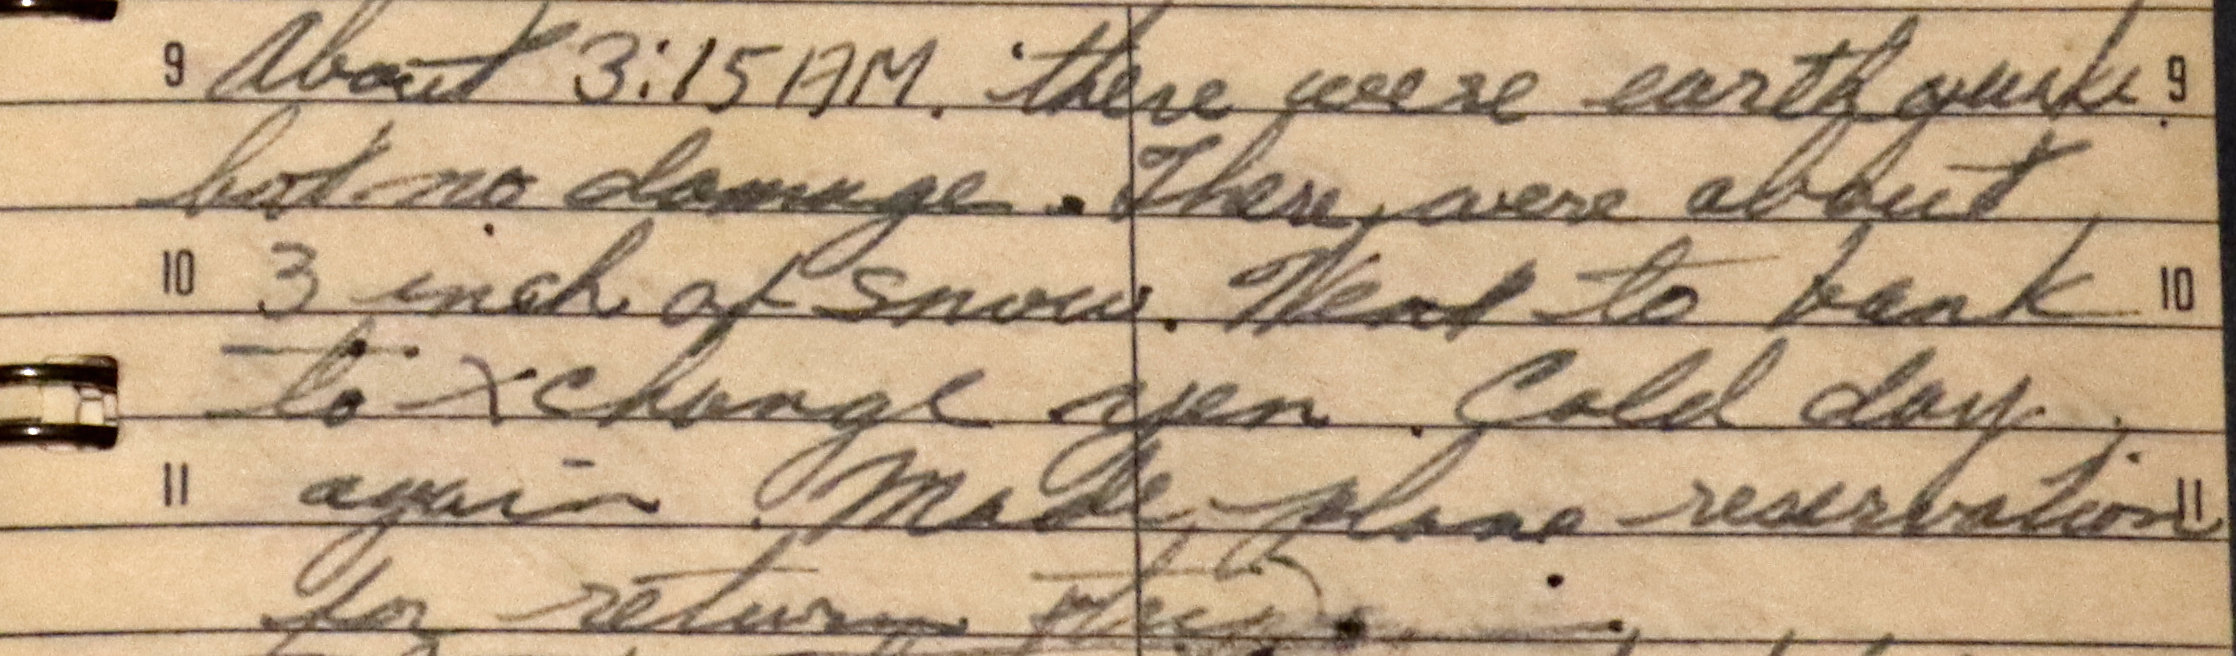 9 About 3:15 AM. there were earth quake 9
but no damage. There were about
10 3 inch of snow. Went to bank 10
to xchange yen. Cold day
11 again. Made plane reservation 11
for return trip